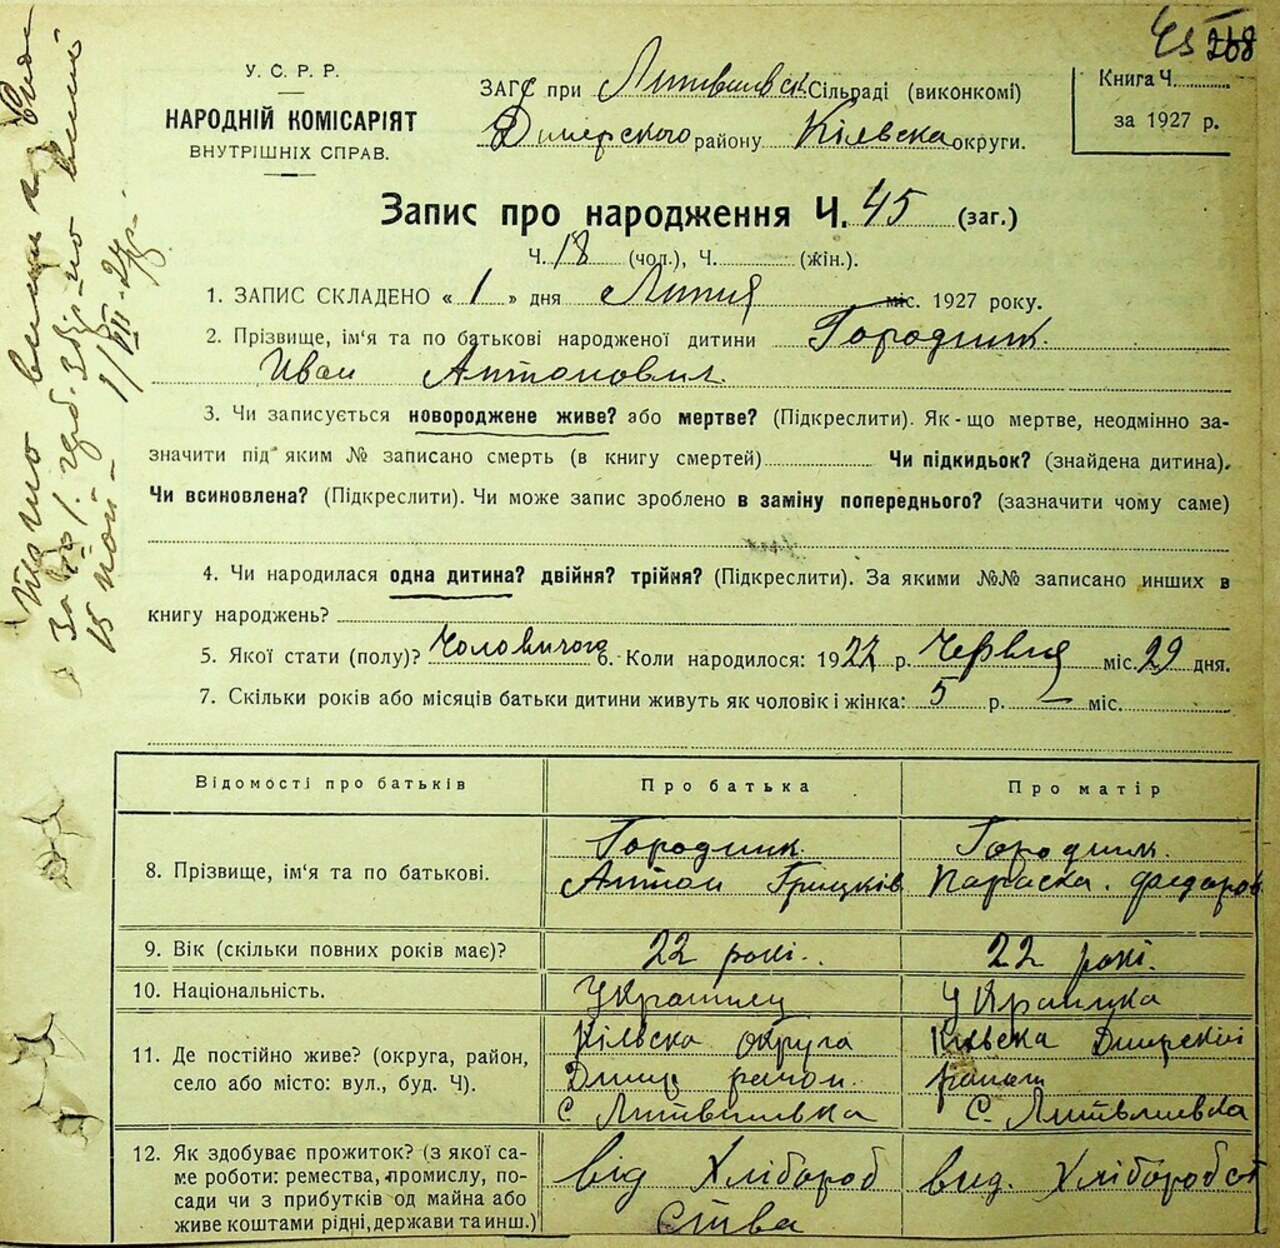 268
У. С. Р. Р.
НАРОДНІЙ КОМІСАРІЯТ
ВНУТРІШНІХ СПРАВ.
ЗАГС при Литвинівск. Сільраді (виконкомі)
Димерского району Київска округи.
Книга Ч.
за 1927 р.
Запис про народження Ч. 45 (заг.)
Ч. 18 (чол.), Ч. (жін.).
1. ЗАПИС СКЛАДЕНО « 1 » дня Липня міс. 1927 року.
2. Прізвище, ім'я та по батькові народженої дитини Городник.
Иван Антонович.
3. Чи записується новороджене живе? або мертве? (Підкреслити). Як-що мертве, неодмінно за-
значити під яким № записано смерть (в книгу смертей) Чи підкидьок? (знайдена дитина).
Чи всиновлена? (Підкреслити). Чи може запис зроблено в заміну попереднього? (зазначити чому саме)
4. Чи народилася одна дитина? двійня? трійня? (Підкреслити). За якими №№ записано инших в
книгу народжень?
5. Якої стати (полу)? Чоловичого 6. Коли народилося: 1927 р. Червня міс. 29 дня.
7. Скільки років або місяців батьки дитини живуть як чоловік і жінка: 5 р. — міс.
Відомості про батьків
Про батька
Про матір
8. Прізвище, ім'я та по батькові.
Городник.
Антон Грицків
Городник.
Параска. Федоров
9. Вік (скільки повних років має)?
22 рокі.
22 рокі.
10. Національність.
Украинец
Украинка
11. Де постійно живе? (округа, район,
село або місто: вул., буд. Ч).
Київска округа
Димир район.
с. Литвинівка
Київска Димрский
район
с. Литвиневка
12. Як здобуває прожиток? (з якої са-
ме роботи: ремества, промислу, по-
сади чи з прибутків од майна або
живе коштами рідні, держави та инш.)
від Хлібороб
ства
вид. Хлібороб